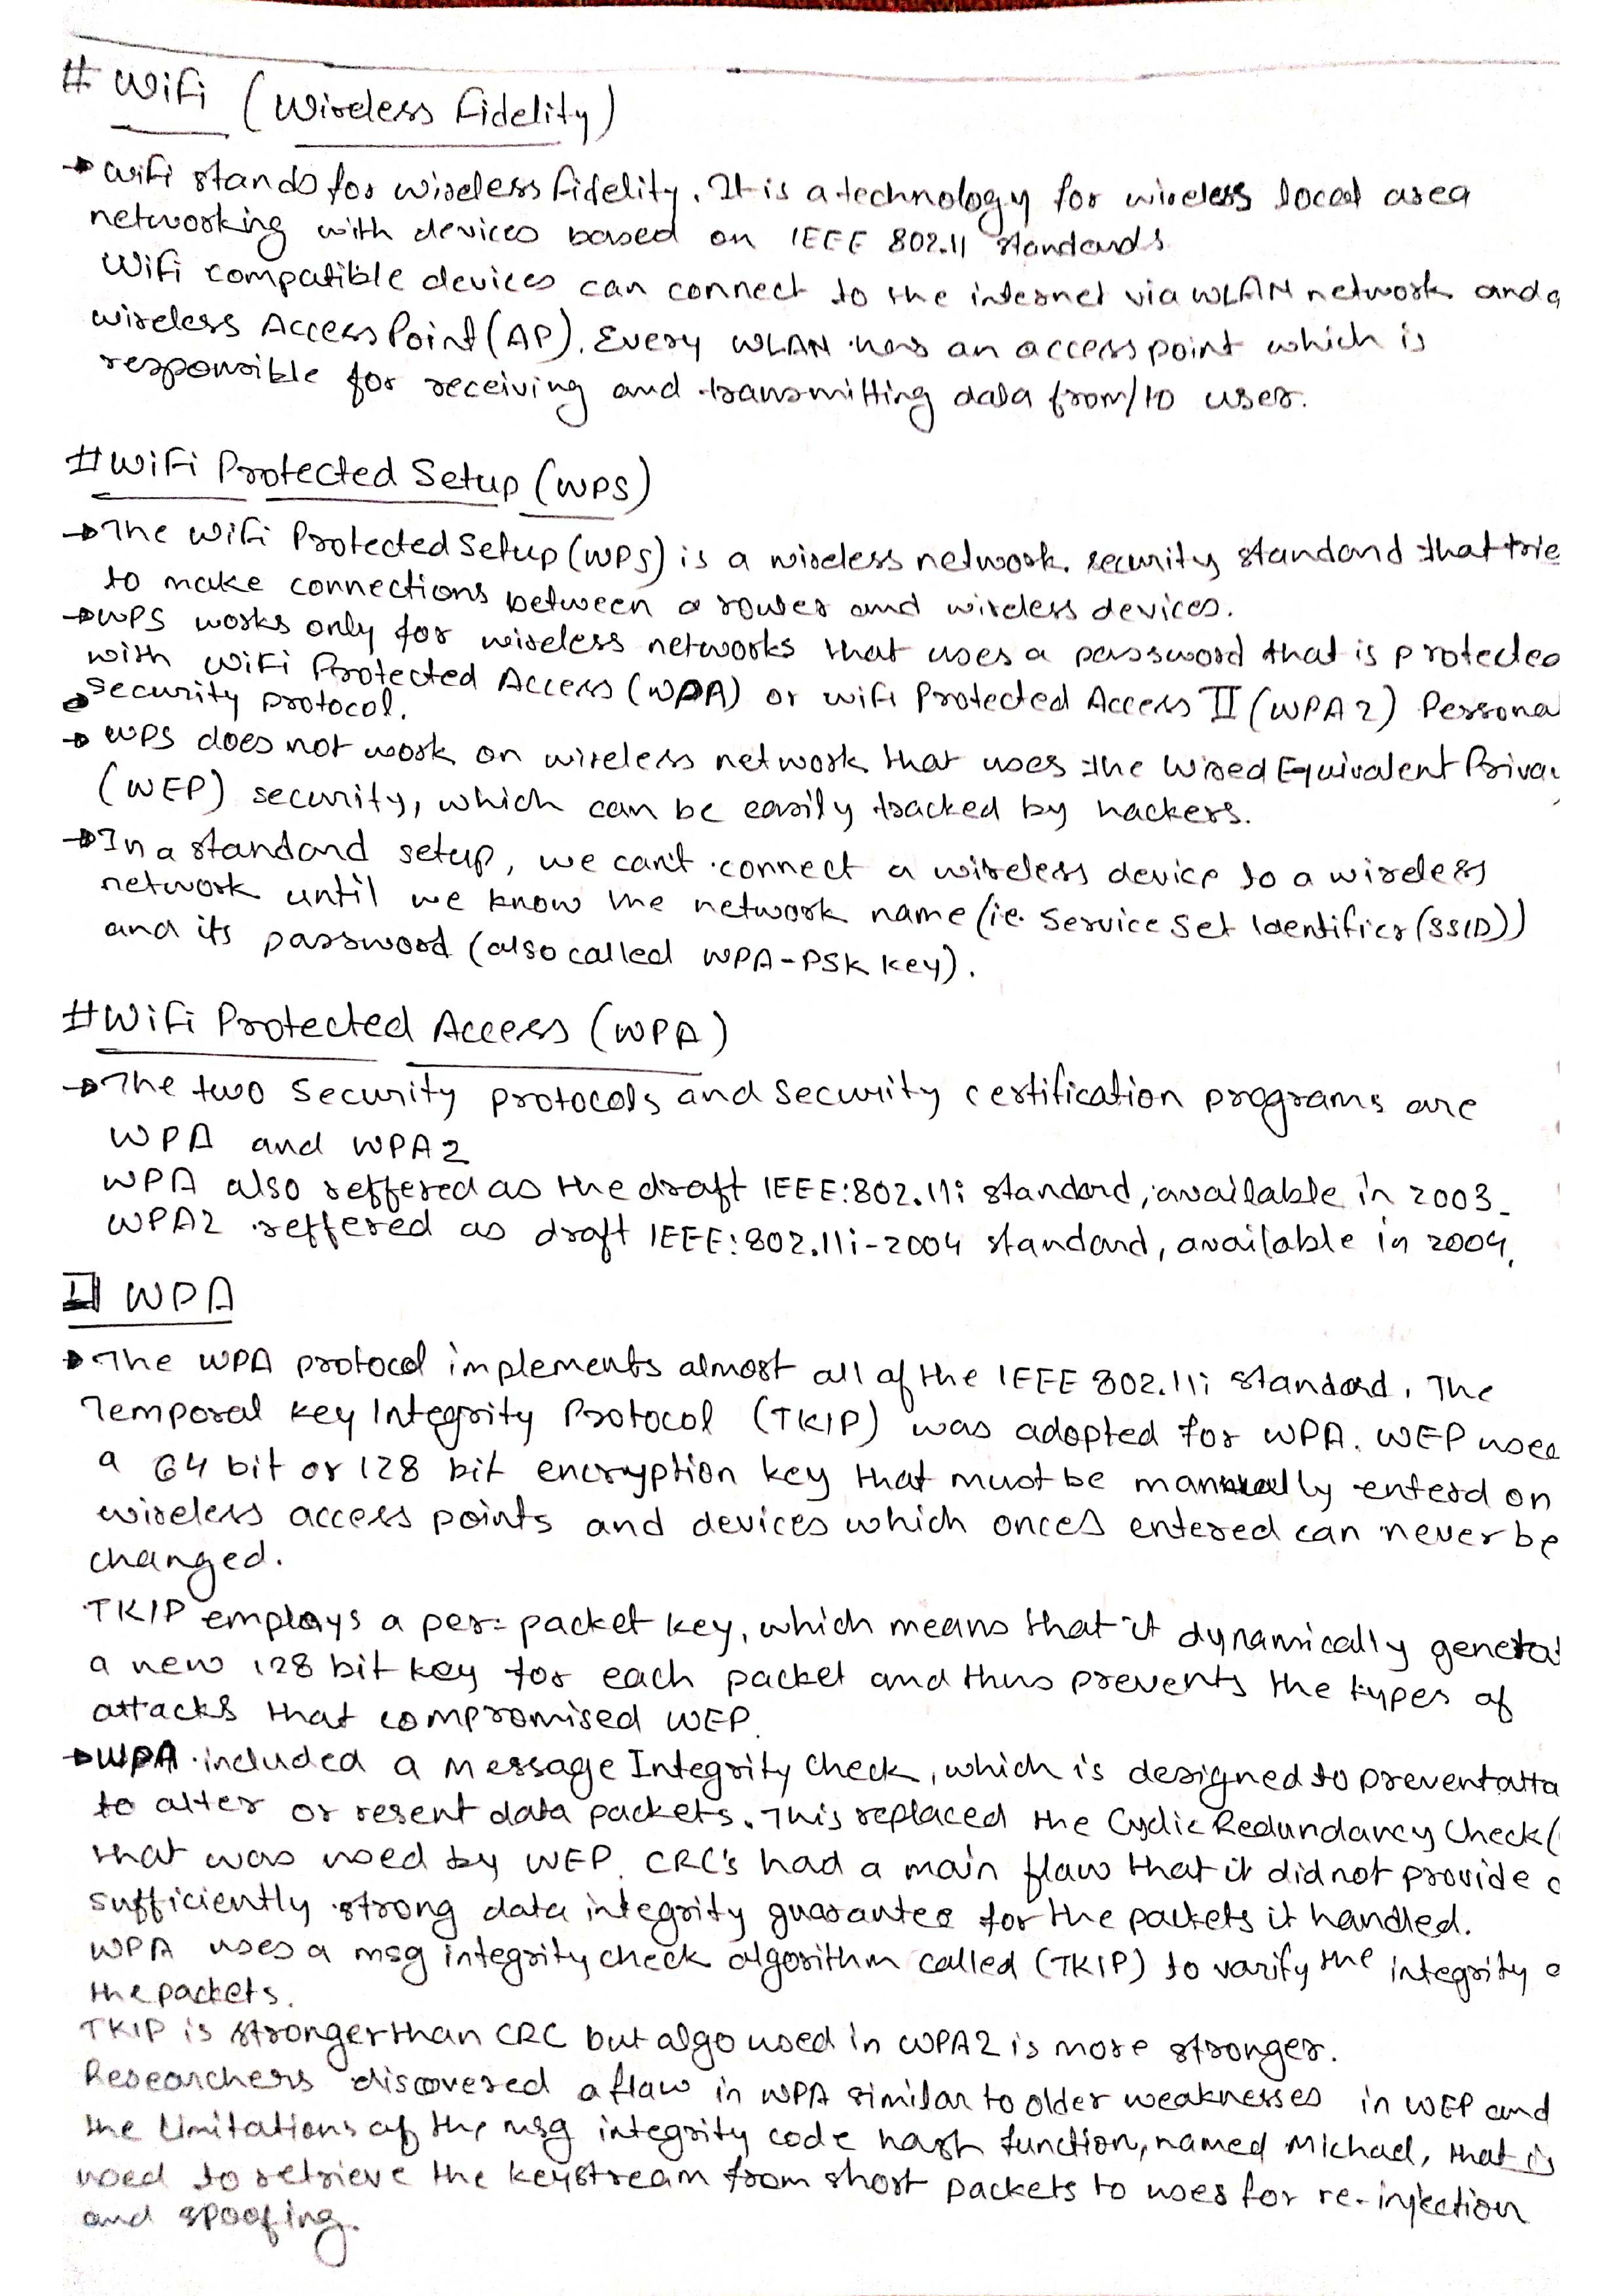 # WiFi (Wireless Fidelity)
→ Wifi stands for wireless fidelity. It is a technology for wireless local area
networking with devices based on IEEE 802.11 standards
Wifi compatible devices can connect to the internet via WLAN network and a
wireless Access Point (AP). Every WLAN has an access point which is
responsible for receiving and transmitting data from/to user.
# WiFi Protected Setup (WPS)
→ The WiFi Protected Setup (WPS) is a wireless network security standard that trie
to make connections between a router and wireless devices.
→ WPS works only for wireless networks that uses a password that is protected
with WiFi Protected Access (WPA) or Wifi Protected Access II (WPA2) Persona
security protocol.
→ WPS does not work on wireless network that uses the Wired Equivalent Priva
(WEP) security, which can be easily tracked by hackers.
→ In a standard setup, we can't connect a wireless device to a wireless
network until we know the network name (i.e. Service Set Identifier (SSID))
and its password (also called WPA-PSK key).
# WiFi Protected Access (WPA)
→ The two Security protocols and security certification programs are
WPA and WPA2
WPA also reffered as the draft IEEE:802.11i standard, available in 2003.
WPA2 reffered as draft IEEE:802.11i-2004 standard, available in 2004.
1] WPA
→ The WPA protocol implements almost all of the IEEE 802.11i standard. The
Temporal Key Integrity Protocol (TKIP) was adopted for WPA. WEP used
a 64 bit or 128 bit encryption key that must be manually enterd on
wireless access points and devices which onces entered can never be
changed.
TKIP employs a per-packet key, which means that it dynamically generat
a new 128 bit key for each packet and thus prevents the types of
attacks that compromised WEP.
→ WPA included a Message Integrity Check, which is designed to prevent atta
to alter or resent data packets. This replaced the Cyclic Redundancy Check (
that was used by WEP. CRC's had a main flaw that it did not provide a
sufficiently strong data integrity guarantee for the packets it handled.
WPA uses a msg integrity check algorithm called (TKIP) to varify the integrity o
the packets.
TKIP is stronger than CRC but algo used in WPA2 is more stronger.
Researchers discovered a flaw in WPA similar to older weaknesses in WEP and
the limitations of the msg integrity code hash function, named Michael, that is
used to retrieve the keystream from short packets to uses for re-injection
and spoofing.